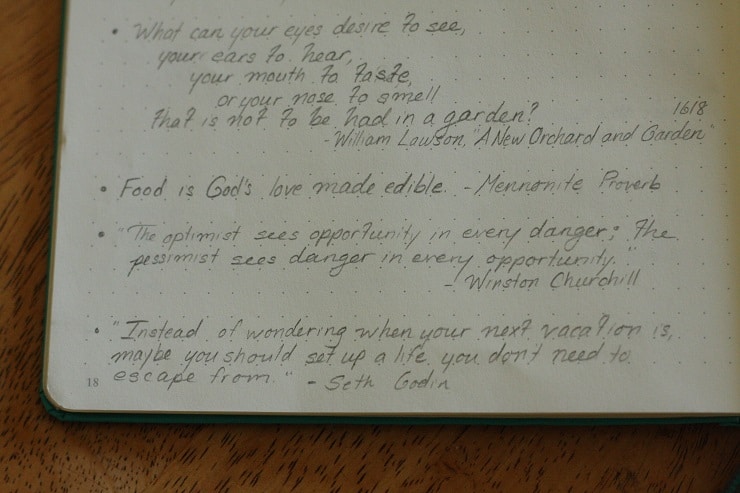 • What can your eyes desire to see,
your ears to hear,
your mouth to taste,
or your nose to smell
that is not to be had in a garden?
1618
- William Lawson, "A New Orchard and Garden"
• Food is God's love made edible. - Mennonite Proverb
• "The optimist sees opportunity in every danger; the
pessimist sees danger in every opportunity."
- Winston Churchill
• "Instead of wondering when your next vacation is,
maybe you should set up a life you don't need to
escape from." - Seth Godin
18